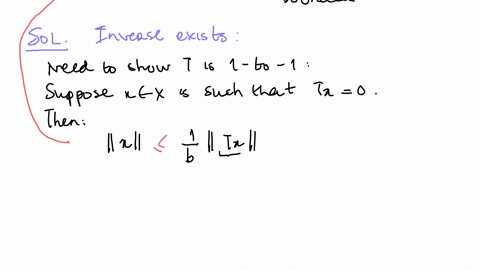 SOL. Inverse exists:
Need to show T is 1-to-1:
Suppose x∈X is such that Tx = 0.
Then:
||x|| ≤ 1/b ||Tx||